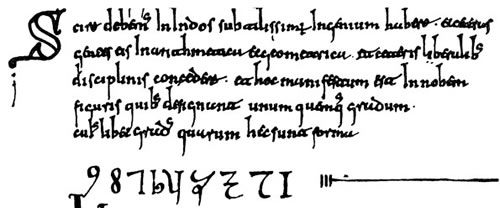 Scire debem' in Indos subtilissimū ingenium habere · et ceteras
gentes eis in arithmetica et geometrica · et ceteris liberalib'
disciplinis concedere · et hoc manifestum est in nobem
figuris quib' designant unum quemq' gradum ·
cui' libet grad' quarum hec sunt forma
9 8 7 6 5 4 3 2 1